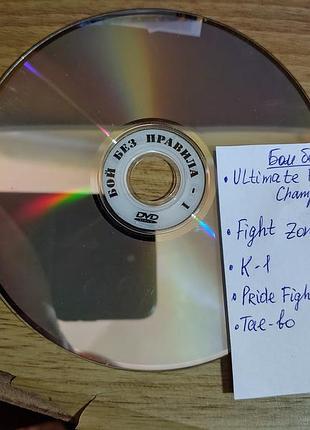 БОЙ БЕЗ ПРАВИЛА - 1
DVD
Бои
• Ultimate
Champ
• Fight Zon
• K-1
• Pride Figh
• Tae-bo